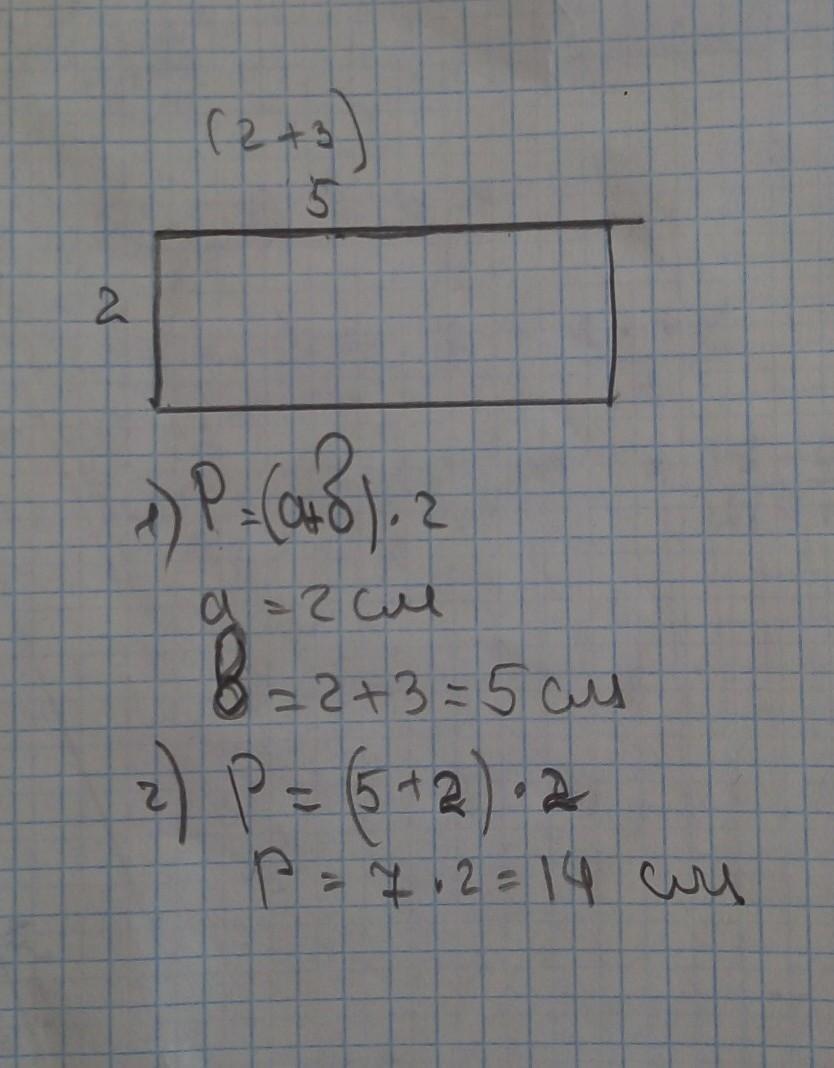 (2+3)
5
2
1) P=(a+b)·2
a=2см
b=2+3=5см
2) P=(5+2)·2
P=7·2=14 см